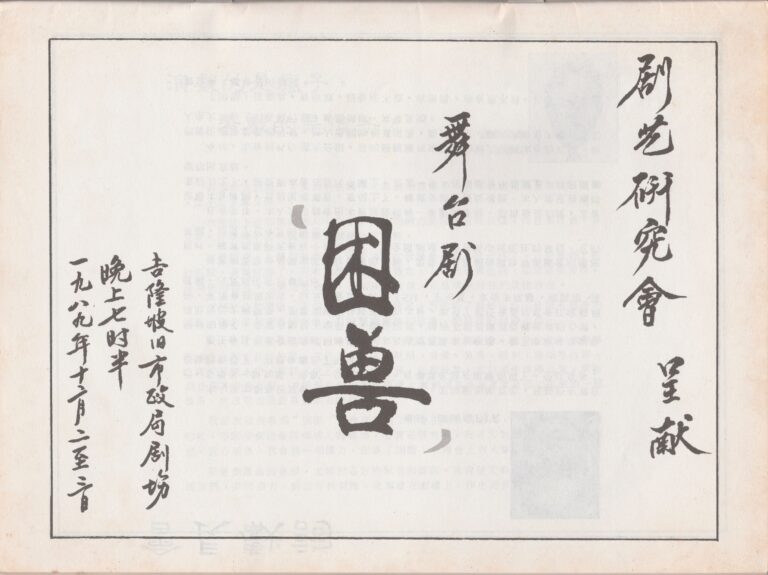 剧艺研究會 呈献
舞台剧
困兽
吉隆坡旧市政局剧场
晚上七时半
一九八九年十二月二至三日